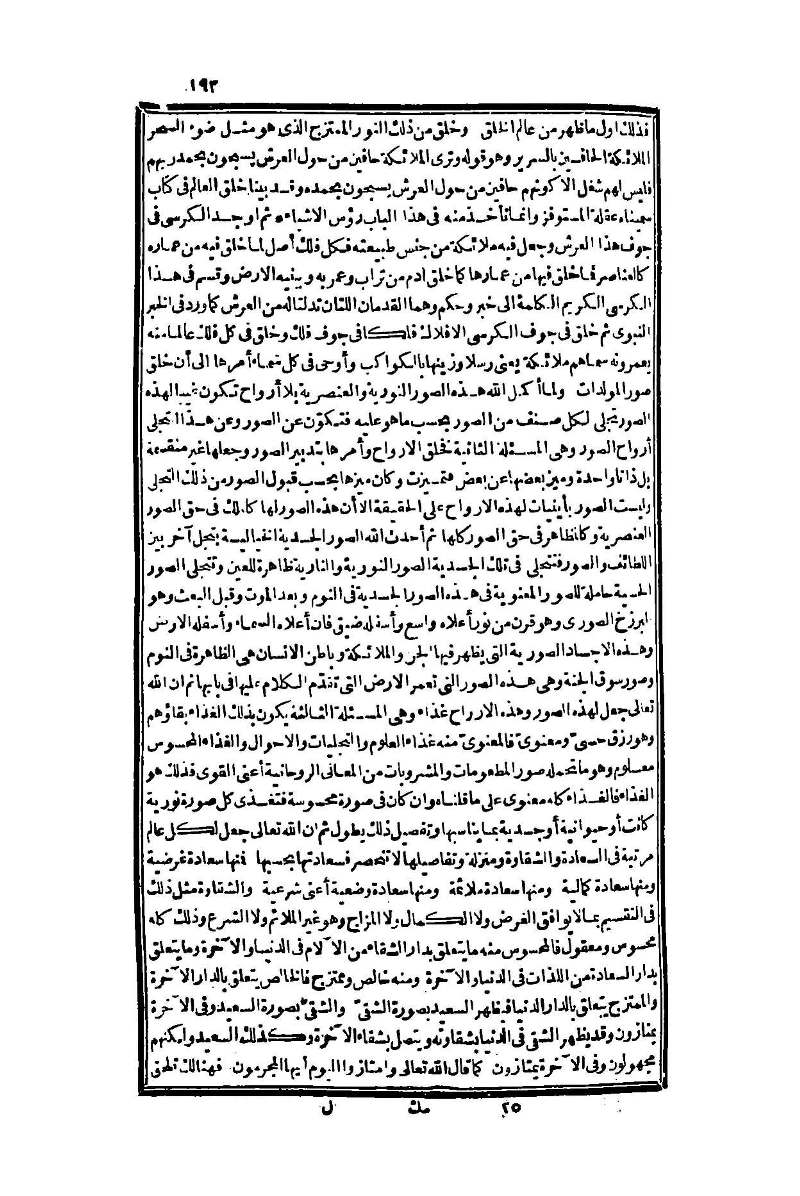 ١٩٣
فذلك اول ما ظهر من عالم الخلق وخلق من ذلك النور الممتزج الذى هو مثل ضوء السحر
الملائكة الحافين بالسرير وهو قوله وترى الملائكة حافين من حول العرش يسبحون بحمد ربهم
فليس لهم شغل الا كونهم حافين من حول العرش يسبحون بحمده وقد بينا خلق العالم فى كتاب
سميناه عقلة المستوفز وانما نأخذ منه فى هذا الباب رؤس الاشياء ثم اوجد الكرسى فى
جوف هذا العرش وجعل فيه ملائكة من جنس طبيعته فكل فلك أصل لما خلق فيه من عماره
كالعناصر فيما خلق فيها من عمارها كما خلق ادم من تراب وعمر به وببنيه الارض وقسم فى هذا
الكرسى الكريم الكلمة الى خبر وحكم وهما القدمان اللتان تدلتا له من العرش كما ورد فى الخبر
النبوى ثم خلق فى جوف الكرسى الافلاك فلكا فى جوف فلك وخلق فى كل فلك عالما منه
يعمرونه سماهم ملائكة يعنى رسلا وزينها بالكواكب وأوحى فى كل سماء أمرها الى أن خلق
صور المولدات ولما أكمل الله هذه الصور النورية والعنصرية بلا أرواح تكون غيبا لهذه
الصور تجلى لكل صنف من الصور بحسب ما هو عليه فتكوّن عن الصور وعن هذا التجلى
أرواح الصور وهى المسئلة الثانية فخلق الارواح وأمرها بتدبير الصور وجعلها غير منقسمة
بل ذاتا واحدة وميز بعضها عن بعض فتميزت وكان ميزها بحسب قبول الصور من ذلك التجلى
وليست الصور بأينيات لهذه الارواح على الحقيقة الا أن هذه الصور لها كالملك فى حق الصور
العنصرية وكالمظاهر فى حق الصور كلها ثم أحدث الله الصور الجسدية الخيالية بتجل آخر بين
اللطائف والصور فتتجلى فى تلك الجسدية الصور النورية والنارية ظاهرة للعين وتتجلى الصور
الحسية حاملة للصور المعنوية فى هذه الصور الجسدية فى النوم وبعد الموت وقبل البعث وهو
البرزخ الصورى وهو قرن من نور أعلاه واسع وأسفله ضيق فان أعلاه العماء وأسفله الارض
وهذه الاجساد الصورية التى يظهر فيها الجن والملائكة وباطن الانسان هى الظاهرة فى النوم
وصور سوق الجنة وهى هذه الصور التى تعمر الارض التى تقدّم الكلام عليها فى بابها ثم ان الله
تعالى جعل لهذه الصور وهذه الارواح غذاء وهى المسئلة الثالثة يكون بذلك الغذاء بقاؤهم
وهو رزق حسىّ ومعنوىّ فالمعنوىّ منه غذاء العلوم والتجليات والاحوال والغذاء المحسوس
معلوم وهو ما تحمله صور المطعومات والمشروبات من المعانى الروحانية أعنى القوى فذلك هو
الغذاء فالغذاء كله معنوى على ما قلناه وان كان فى صورة محسوسة فتتغذى كل صورة نورية
كانت أو حيوانية أو جسدية بما يناسبها وتفصيل ذلك يطول ثم ان الله تعالى جعل لكل عالم
مرتبة فى السعادة والشقاوة ومنزلة وتفاصيلها لا تنحصر فسعادتها بحسبها فمنها سعادة غرضية
ومنها سعادة كمالية ومنها سعادة ملائمة ومنها سعادة وضعية أعنى شرعية والشقاوة مثل ذلك
فى التقسيم بما لا يوافق الغرض ولا الكمال ولا المزاج وهو غير الملائم ولا الشرع وذلك كله
محسوس ومعقول فالمحسوس منه ما يتعلق بدار الشقاء من الآلام فى الدنيا والآخرة وما يتعلق
بدار السعادة من اللذات فى الدنيا والآخرة ومنه خالص وممتزج فالخالص يتعلق بالدار الآخرة
والممتزج يتعلق بالدار الدنيا فيظهر السعيد بصورة الشقىّ والشقىّ بصورة السعيد وفى الآخرة
يمتازون وقد يظهر الشقى فى الدنيا بشقاوته ويتصل بشقاء الآخرة وكذلك السعيد ولكنهم
مجهولون وفى الآخرة يمتازون كما قال الله تعالى وامتازوا اليوم أيها المجرمون فهنالك تلحق
٢٥ مك ل